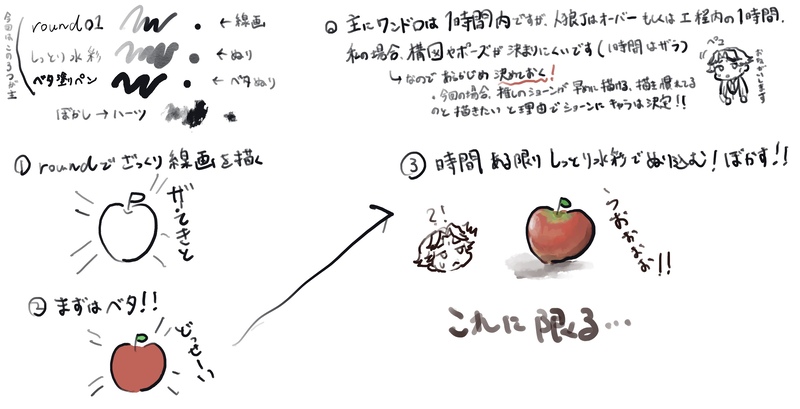 今回はこの3つが主
round01 ←線画
しっとり水彩 ←ぬり
ベタ塗りペン ←ベタぬり
ぼかし→ハーツ
◎ 主にワンドロは1時間内ですが、人狼Jはオーバーもしくは工程内の1時間.
私の場合、構図やポーズが決まりにくいです(1時間はザラ)
↳なのであらかじめ決めておく!
・今回の場合、推しのショーンが早めに描ける、描き慣れてる
のと描きたいと理由でショーンにキャラは決定!!
ペコ
おねがいします
① roundでざっくり線画を描く
ザ・てきと
② まずはベタ!!
どっせーい
③ 時間ある限りしっとり水彩でぬり込む!ぼかす!!
?!
うおおおお!!
これに限る…